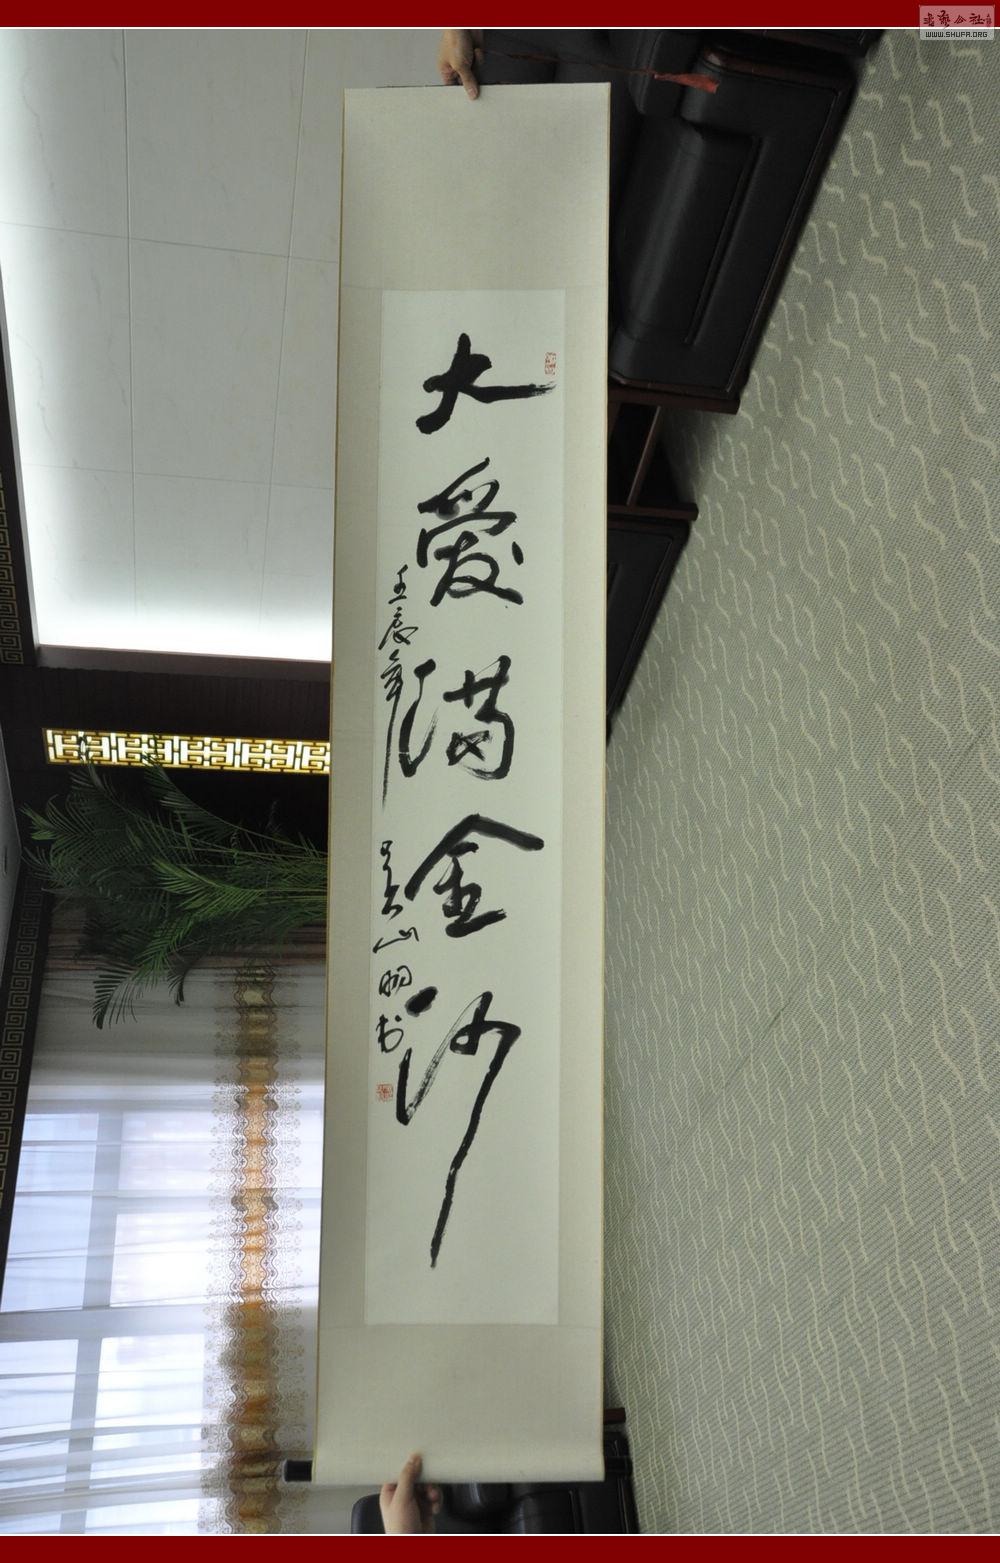 大爱满金沙
壬辰年 吴山明书
书艺公社
WWW.SHUFA.ORG